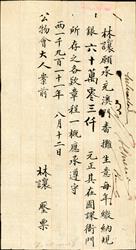 林讓願承充澳門番攤生意每年繳納規
銀六十萬零三仟　元正其在國課衙門
所存之各欵章程一概應承遵守
西一千九百一十一年　八月十二日
公物會大人案前
林讓　壓票